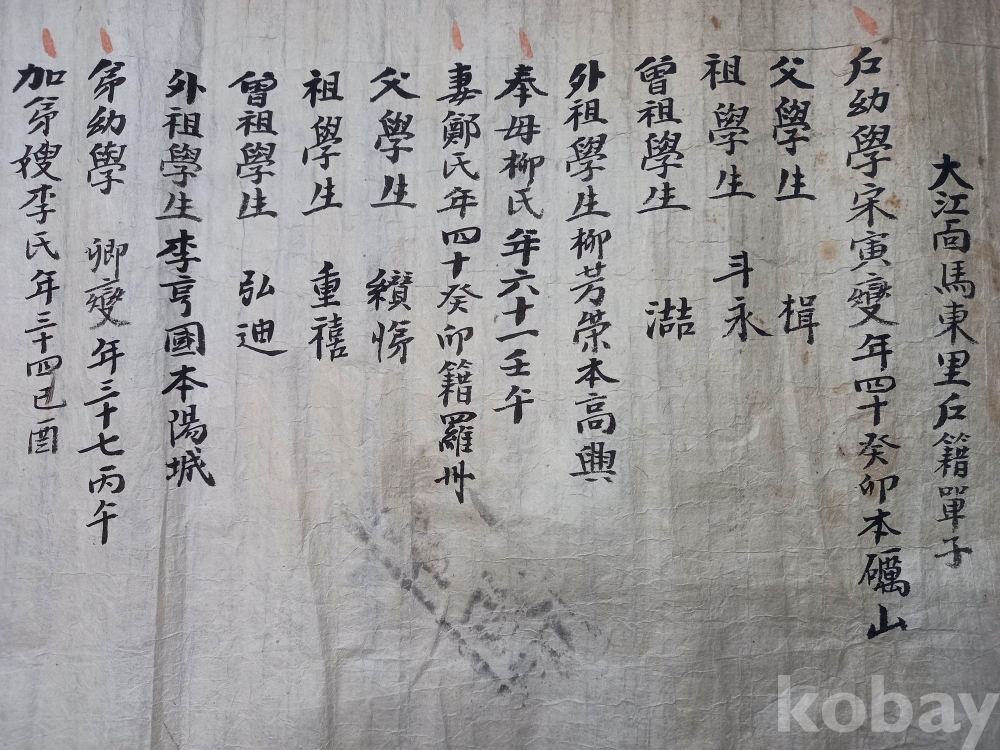 大江面馬東里戶籍單子
戶幼學宋寅燮年四十癸卯本礪山
父學生 楫
祖學生 斗永
曾祖學生 澔
外祖學生柳芳榮本高興
奉母柳氏年六十一壬午
妻鄭氏年四十癸卯籍羅州
父學生 纘
祖學生 重禧
曾祖學生 弘迪
外祖學生李亨國本陽城
弟幼學 卿燮年三十七丙午
加弟嫂李氏年三十四己酉
kobay